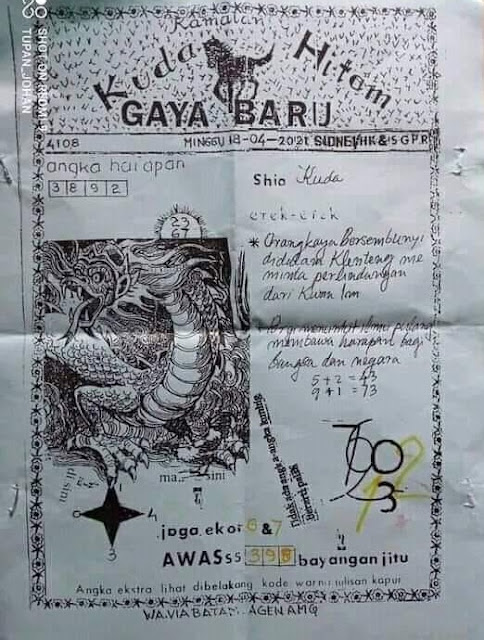 SHOT ON REDMI 9
TUPAN_JOHAN
Ramalan
Kuda Hitam
GAYA BARU
4108
MINGGU 18-04-2021 SIDNEY/HK & SGPR
angka harapan
3 8 9 2
Shio Kuda
erek-erek
* Orangkaya Bersembunyi
didalam Klenteng me
minta perlindungan
dari Kwan Im
* Pergi menuntut ilmu pulang
membawa harapan bagi
bangsa dan negara
5+2 = 43
9+1 = 73
Tidak ada angka-angka kembar
Berarti
sini
4
3
jaga ekor 6 & 7
AWAS 55 398 bayangan jitu
Angka ekstra lihat dibelakang kode warna tulisan kapur
WA.VIA BATAM. AGEN AMQ